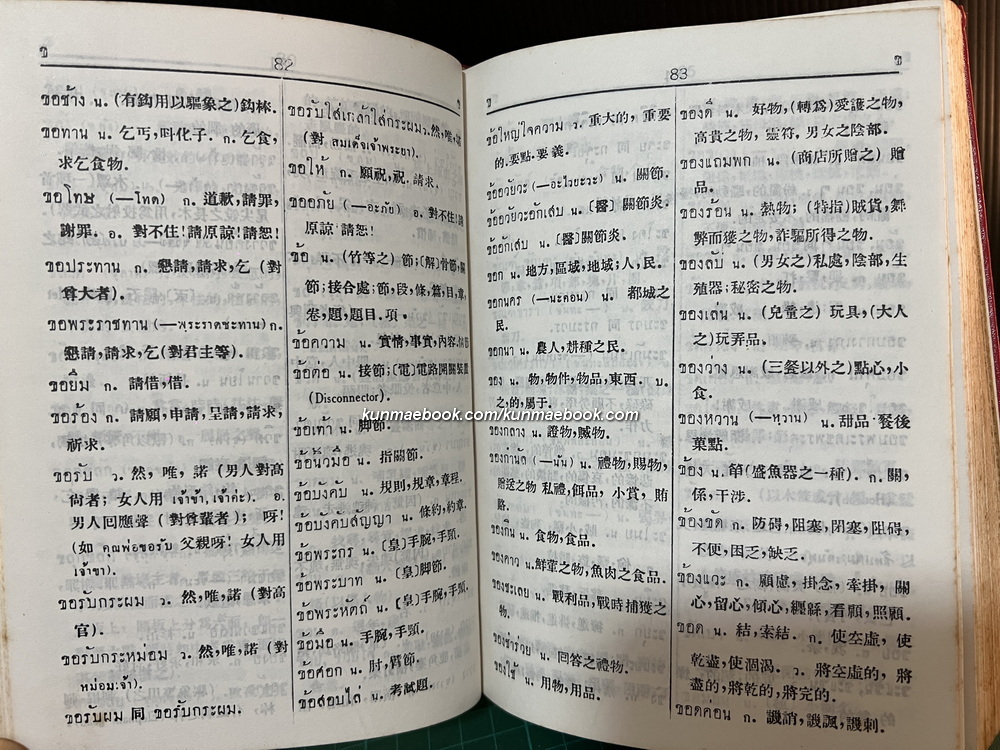 ข
82
ขอช้าง น. (有鈎用以驅象之)鈎杯.
ขอทาน น. 乞丐,叫化子. ก. 乞食,
求乞食物.
ขอโทษ (—โทด) ก. 道歉,請罪,
謝罪. อ. 對不住!請原諒!請恕!
ขอประทาน ก. 懇請,請求,乞 (對
尊大者).
ขอพระราชทาน (—พฺระราดชะทาน) ก.
懇請,請求,乞(對君主等).
ขอยืม ก. 請借,借.
ขอร้อง ก. 請願,申請,呈請,請求,
祈求.
ขอรับ ว. 然,唯,諾 (男人對高
尚者; 女人用 เจ้าข้า, เจ้าค่ะ). อ.
男人回應聲 (對尊輩者); 呀!
(如 คุณพ่อขอรับ 父親呀! 女人用
เจ้าขา).
ขอรับกระผม ว. 然,唯,諾 (對高
官).
ขอรับกระหม่อม ว. 然,唯,諾 (對
หม่อมเจ้า).
ขอรับผม 同 ขอรับกระผม.
ข
ขอรับใส่เกล้าใส่กระผม ว. 然,唯,諾
(對 สมเด็จเจ้าพระยา).
ขอให้ ก. 願祝,祝. 請求.
ขออภัย (—อะภัย) อ. 對不住!請
原諒 請恕!
ข้อ น. (竹等之) 節;[解]骨節,關
節;接合處;節,段,條,篇,目,章,
卷,題,題目.項.
ข้อความ น. 實情,事實,內容.
ข้อต่อ น. 接節;(電)電路開關裝置
(Disconnector).
ข้อเท้า น. 脚節.
ข้อนิ้วมือ น. 指關節.
ข้อบังคับ น. 規則,規章,章程.
ข้อบังคับสัญญา น. 條約,約章.
ข้อพระกร น. [皇]手腕,手頸.
ข้อพระบาท น. [皇]脚節.
ข้อพระหัตถ์ น. [皇]手腕,手頸.
ข้อมือ น. 手腕,手頸.
ข้อศอก น. 肘,臂節.
ข้อสอบไล่ น. 考試題.
83
ข
ข
ข้อใหญ่ใจความ ว. 重大的, 重要
的.要點.要義.
ข้ออวัยวะ (—อะไวยะวะ) น. 關節.
ข้ออวัยวะอักเสบ น. [醫] 關節炎.
ข้ออักเสบ น. [醫]關節炎.
ขอก น. 地方,區域,地域;人,民.
ขอกนคร (—นะคอน) น. 都城之
民.
ขอกนา น. 農人,耕種之民.
ของ น. 物,物件,物品,東西. บ.
之,的,屬于.
ของกลาง น. 證物,贓物.
ของกำนัล (—นัน) น. 禮物,賜物,
贈送之物 私禮,餌品,小賞, 賄
賂.
ของกิน น. 食物,食品.
ของคาว น.鮮葷之物,魚肉之食品.
ของชะเลย น. 戰利品,戰時捕獲之
物.
ของชำร่วย น. 回答之禮物.
ของใช้ น. 用物,用品.
ของดี น. 好物,(轉爲)愛護之物,
高貴之物,靈符,男女之陰部.
ของแถมพก น. (商店所贈之) 贈
品.
ของร้อน น. 熱物; (特指)賊貨,舞
弊而獲之物,詐騙所得之物.
ของลับ น. (男女之)私處,陰部,生
殖器;秘密之物.
ของเล่น น. (兒童之) 玩具,(大人
之)玩弄品.
ของว่าง น. (三餐以外之)點心,小
食.
ของหวาน (—หฺวาน) น.甜品 餐後
菓點.
ข้อง น. 笱(盛魚器之一種). ก. 關,
係,干涉.
ข้องขัด ก. 防碍,阻塞,閉塞,阻碍,
不便,困乏,缺乏.
ข้องแวะ ก. 顧慮,掛念,牽掛, 關
心,留心,傾心,纒繇,看顧,照顧.
ขอด น. 結,索結. ก. 使空虛, 使
乾盡,使涸渴. ว. 將空虛的, 將
盡的,將乾的,將完的.
ขอดค่อน ก. 譏誚,譏諷,譏刺.
kunmaebook.com/kunmaebook.com